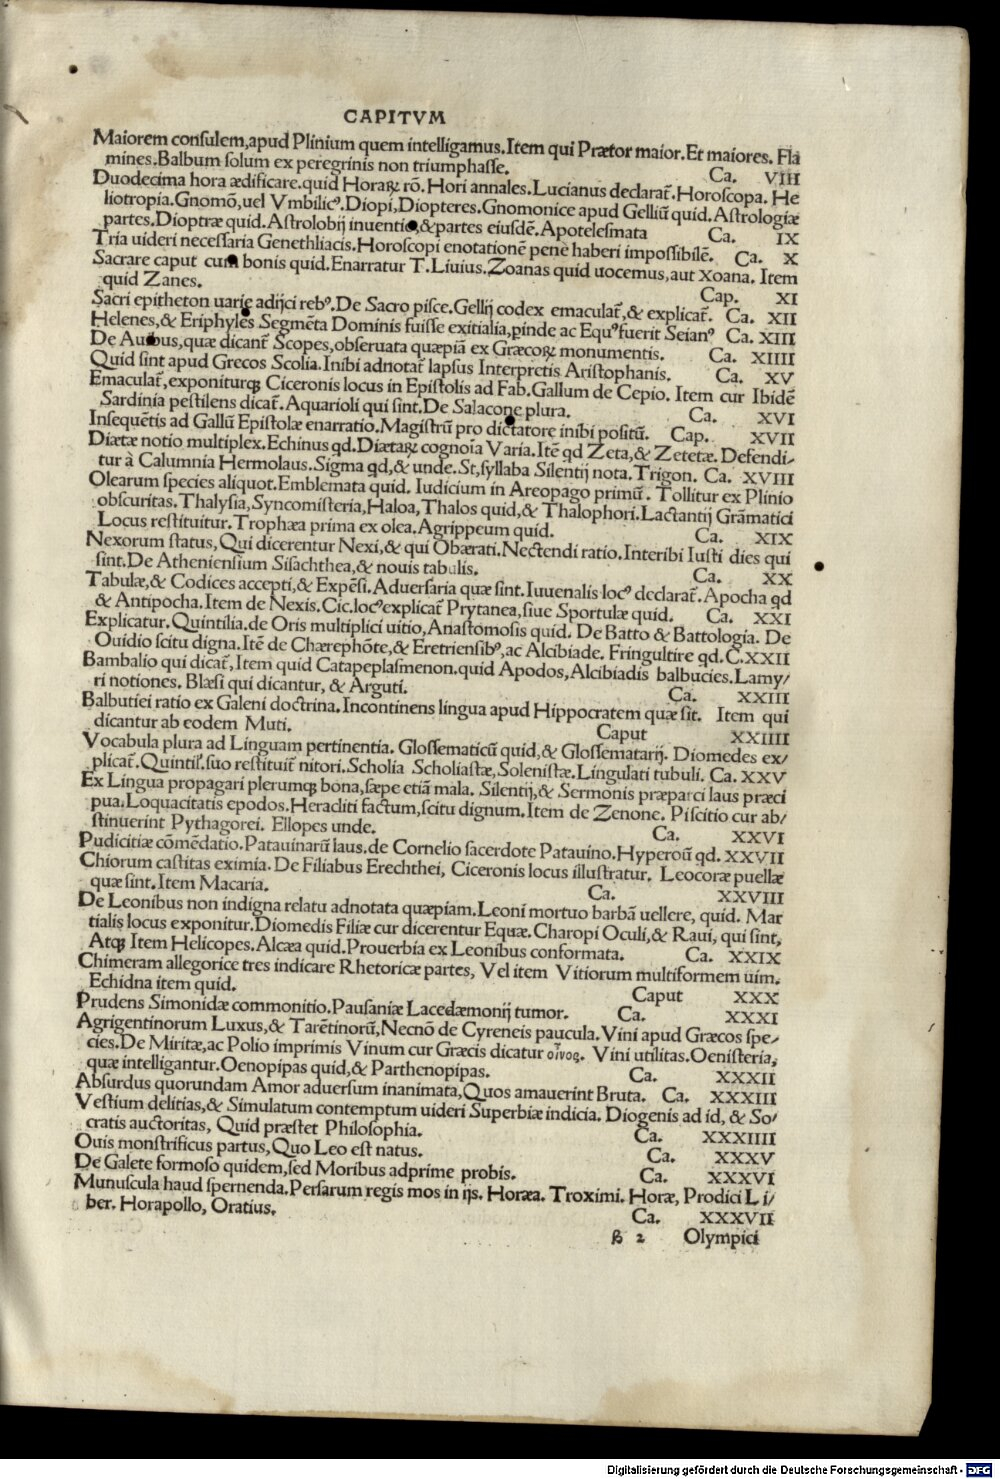 CAPITVM
Maiorem conſulem,apud Plinium quem intelligamus.Item qui Prætor maior.Et maiores. Fla
mines.Balbum ſolum ex peregrinis non triumphaſſe. Ca. VIII
Duodecima hora ædificare.quid Horaꝝ rõ. Hori annales.Lucianus declarat̃.Horoſcopa. He
liotropia.Gnomõ,uel Vmbilicꝰ.Diopi,Diopteres.Gnomonice apud Gelliũ quid.Aſtrologiæ
partes.Dioptræ quid.Aſtrolobij inuentio,&partes eiuſdẽ.Apoteleſmata Ca. IX
Tria uideri neceſſaria Genethliacis.Horoſcopi enotationẽ pene haberi impoſſibilẽ. Ca. X
Sacrare caput cum bonis quid.Enarratur T.Liuius.Zoanas quid uocemus,aut xoana. Item
quid Zanes. Cap. XI
Sacri epitheton uarie adijci rebꝰ.De Sacro piſce.Gellij codex emaculat̃,& explicat̃. Ca. XII
Helenes,& Eriphyles Segmẽta Dominis fuiſſe exitialia,ꝑinde ac Equꝰfuerit Seianꝰ Ca. XIII
De Auibus,quæ dicant̃ Scopes,obſeruata quæpiã ex Græcoꝝ monumentis. Ca. XIIII
Quid ſint apud Grecos Scolia.Inibi adnotat̃ lapſus Interpretis Ariſtophanis. Ca. XV
Emaculat̃,exponiturqꝫ Ciceronis locus in Epiſtolis ad Fab.Gallum de Cepio. Item cur Ibidẽ
Sardinia peſtilens dicat̃.Aquarioli qui ſint.De Salacone plura. Ca. XVI
Inſequẽtis ad Gallũ Epiſtolæ enarratio.Magiſtrũ pro dictatore inibi poſitũ. Cap. XVII
Diætæ notio multiplex.Echinus qd.Diætaꝝ cognoĩa Varia.Itẽ qd Zeta,& Zetetæ. Defendi-
tur à Calumnia Hermolaus.Sigma qd,& unde.St,ſyllaba Silentij nota.Trigon. Ca. XVIII
Olearum ſpecies aliquot.Emblemata quid. Iudicium in Areopago primũ. Tollitur ex Plinio
obſcuritas.Thalyſia,Syncomiſteria,Haloa,Thalos quid,& Thalophori.Lactantij Grãmatici
Locus reſtituitur.Trophæa prima ex olea.Agrippeum quid. Ca. XIX
Nexorum ſtatus,Qui dicerentur Nexi,& qui Obærati.Nectendi ratio.Interibi Iuſti dies qui
ſint.De Athenienſium Siſachthea,& nouis tabulis. Ca. XX
Tabulæ,& Codices accepti,& Expẽſi.Aduerſaria quæ ſint.Iuuenalis locꝰ declarat̃.Apocha qd
& Antipocha.Item de Nexis.Cic.locꝰexplicat̃ Prytanea,ſiue Sportulæ quid. Ca. XXI
Explicatur.Quintilia.de Oris multiplici uitio,Anaſtomoſis quid. De Batto & Battologia. De
Ouidio ſcitu digna.Itẽ de Chærephõte,& Eretrienſibꝰ,ac Alcibiade. Fringultire qd.C.XXII
Bambalio qui dicat̃,Item quid Catapeplaſmenon.quid Apodos,Alcibiadis balbucies.Lamy/
ri notiones. Blæſi qui dicantur, & Arguti. Ca. XXIII
Balbutiei ratio ex Galeni doctrina.Incontinens lingua apud Hippocratem quæ ſit. Item qui
dicantur ab eodem Muti. Caput XXIIII
Vocabula plura ad Linguam pertinentia. Gloſſematicũ quid,& Gloſſematarij. Diomedes ex/
plicat̃.Quintil.ſuo reſtituit̃ nitori.Scholia Scholiaſtæ,Soleniſtæ.Lingulati tubuli. Ca. XXV
Ex Lingua propagari plerumqꝫ bona,ſæpe etiã mala. Silentij,& Sermonis præparci laus præci
pua.Loquacitatis epodos.Heracliti factum,ſcitu dignum.Item de Zenone. Piſcitio cur ab/
ſtinuerint Pythagorei. Ellopes unde. Ca. XXVI
Pudicitiæ cõmẽdatio.Patauinarũ laus.de Cornelio ſacerdote Patauino.Hyperoũ qd. XXVII
Chiorum caſtitas eximia. De Filiabus Erechthei, Ciceronis locus illuſtratur. Leocoræ puellæ
quæ ſint.Item Macaria. Ca. XXVIII
De Leonibus non indigna relatu adnotata quæpiam.Leoni mortuo barbã uellere, quid. Mar
tialis locus exponitur.Diomedis Filiæ cur dicerentur Equæ.Charopi Oculi,& Raui, qui ſint,
Atqꝫ Item Helicopes.Alcæa quid.Prouerbia ex Leonibus conformata. Ca. XXIX
Chimeram allegorice tres indicare Rhetoricæ partes, Vel item Vitiorum multiformem uim.
Echidna item quid. Caput XXX
Prudens Simonidæ commonitio.Pauſaniæ Lacedæmonij tumor. Ca. XXXI
Agrigentinorum Luxus,& Tarẽtinorũ,Necnõ de Cyreneis paucula.Vini apud Græcos ſpe-
cies.De Miritæ,ac Polio imprimis Vinum cur Græcis dicatur οἶνος. Vini utilitas.Oeniſteria,
quæ intelligantur.Oenopipas quid,& Parthenopipas. Ca. XXXII
Abſurdus quorundam Amor aduerſum inanimata,Quos amauerint Bruta. Ca. XXXIII
Veſtium delitias,& Simulatum contemptum uideri Superbiæ indicia. Diogenis ad id, & So/
cratis auctoritas, Quid præſtet Philoſophia. Ca. XXXIIII
Ouis monſtrificus partus,Quo Leo eſt natus. Ca. XXXV
De Galete formoſo quidem,ſed Moribus adprime probis. Ca. XXXVI
Munuſcula haud ſpernenda.Perſarum regis mos in ijs. Horæa. Troximi. Horæ, Prodici Li/
ber. Horapollo, Oratius. Ca. XXXVII
ß 2 Olympici
Digitalisierung gefördert durch die Deutsche Forschungsgemeinschaft - DFG